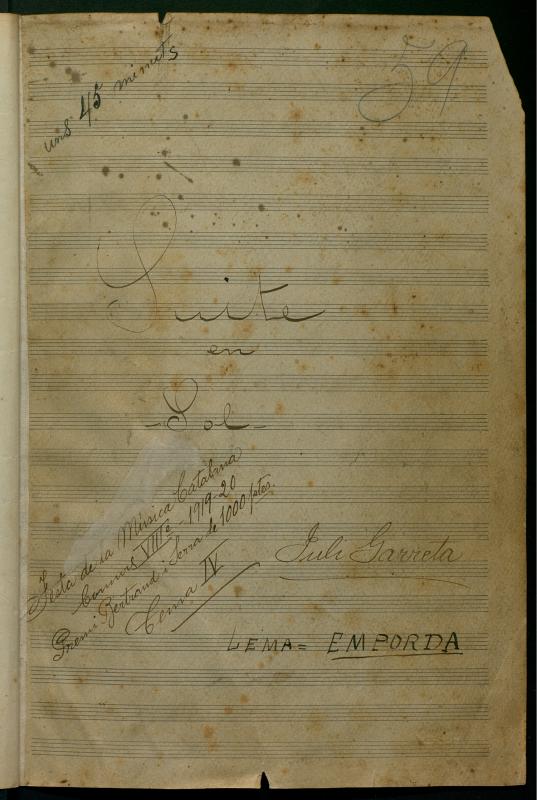 uns 45 minuts
59
Suite
en
- Sol -
Festa de la Música Catalana
Concurs VIIIè - 1919-20
Premi Bertrand i Serra de 1000 ptes.
Tema IV
Juli Garreta
LEMA = EMPORDA